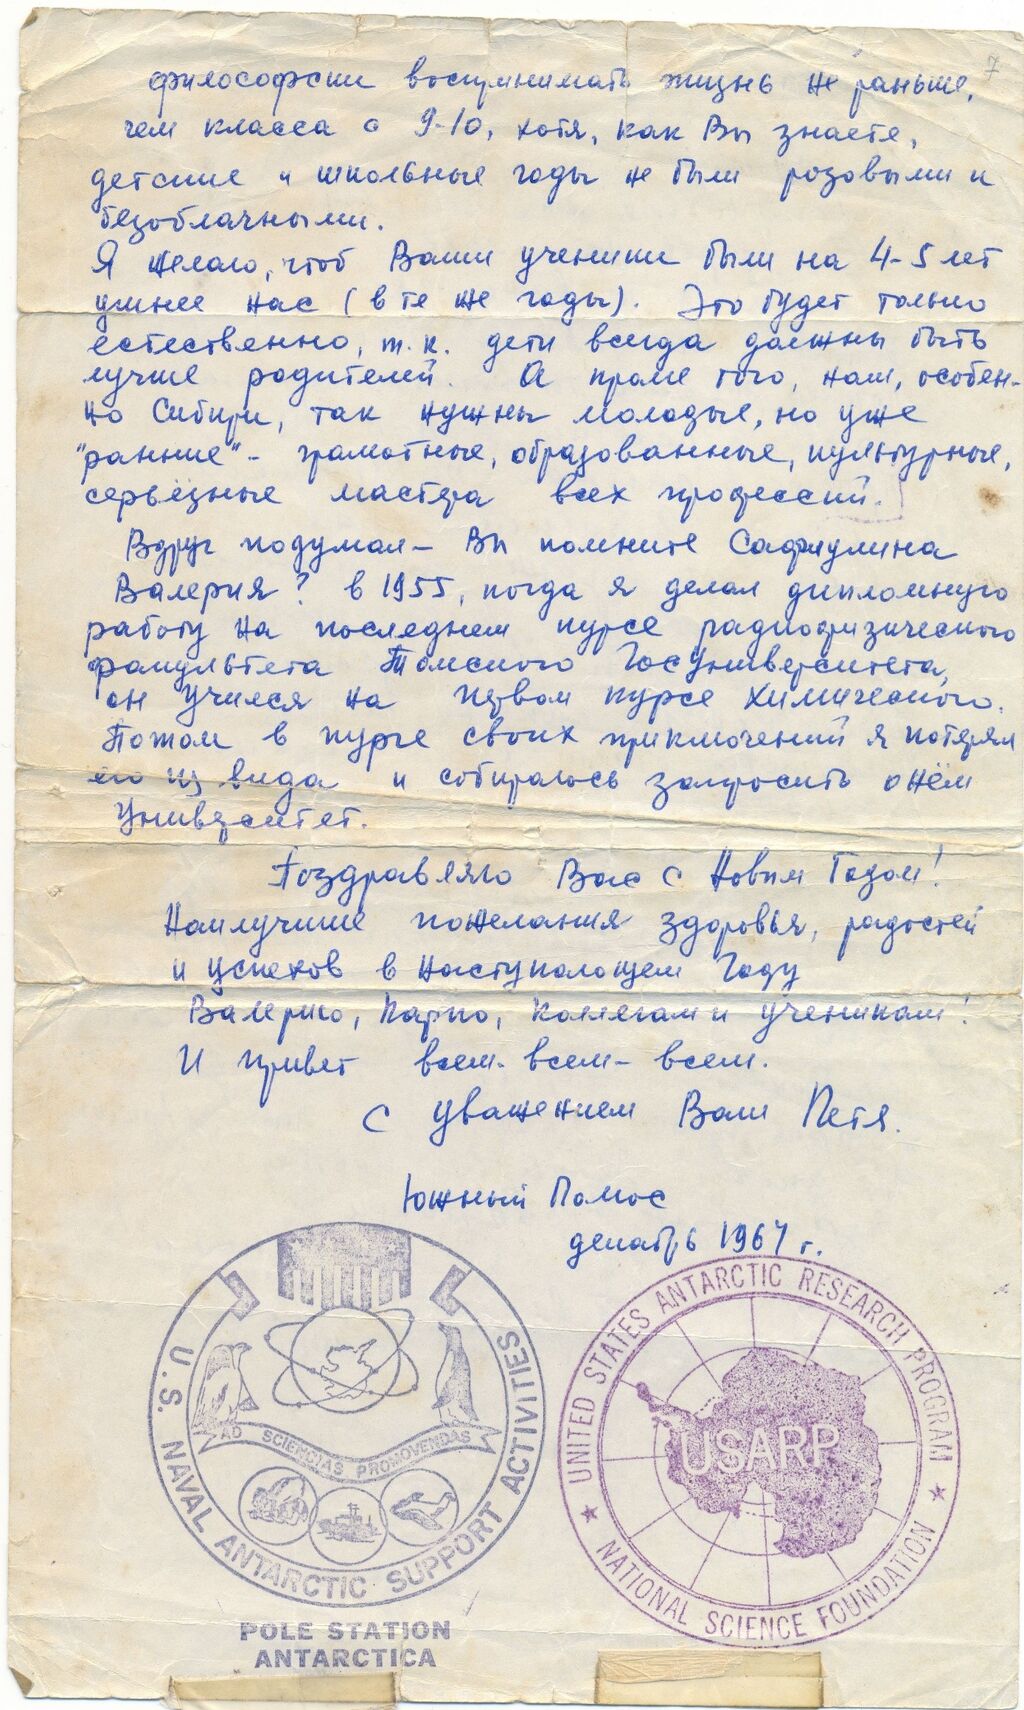 7
философски воспринимать жизнь не раньше,
чем класса с 9-10, хотя, как Вы знаете,
детские и школьные годы не были розовыми и
безоблачными.
Я желаю, чтоб Ваши ученики были на 4-5 лет
умнее нас (в те же годы). Это будет только
естественно, т.к. дети всегда должны быть
лучше родителей. А кроме того, нам, особен-
но Сибири, так нужны молодые, но уже
"ранние" - грамотные, образованные, культурные,
серьёзные мастера всех профессий.
Вдруг подумал - Вы помните Сафиулина
Валерия? в 1955, когда я делал дипломную
работу на последнем курсе радиофизического
факультета Томского Госуниверситета,
он учился на первом курсе химического.
Потом в пурге своих приключений я потерял
его из вида и собираюсь запросить о нём
Университет.
Поздравляю Вас с Новым Годом!
Наилучшие пожелания здоровья, радостей
и успехов в наступающем Году
Валерию, Карпо, коллегам и ученикам!
И привет всем- всем- всем.
С уважением Ваш Петя.
Южный Полюс
декабрь 1967 г.
U.S. NAVAL ANTARCTIC SUPPORT ACTIVITIES
AD SCIENCIAS PROMOVENDAS
POLE STATION
ANTARCTICA
UNITED STATES ANTARCTIC RESEARCH PROGRAM
USARP
NATIONAL SCIENCE FOUNDATION